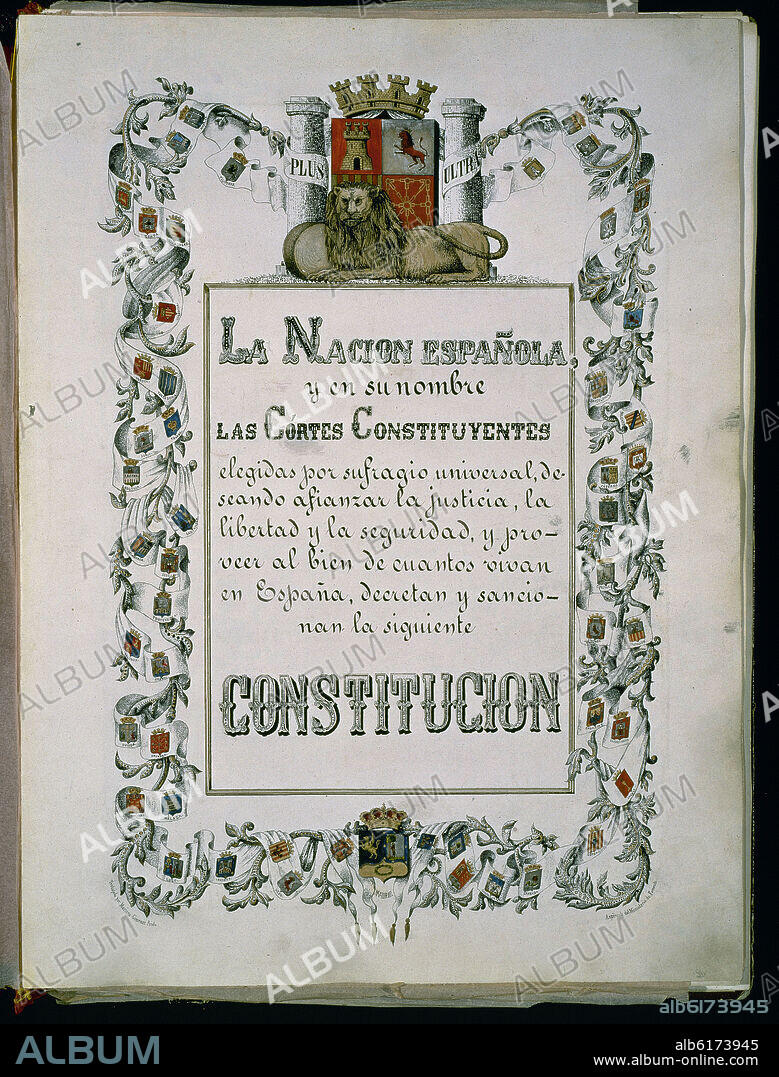 PLUS ULTRA
LA NACION ESPAÑOLA,
y en su nombre
LAS CÓRTES CONSTITUYENTES
elegidas por sufragio universal, de-
seando afianzar la justicia, la
libertad y la seguridad, y pro-
veer al bien de cuantos vivan
en España, decretan y sancio-
nan la siguiente
CONSTITUCION
MADRID
ALBUM
alb6173945
ALBUM
alb6173945
www.album-online.com